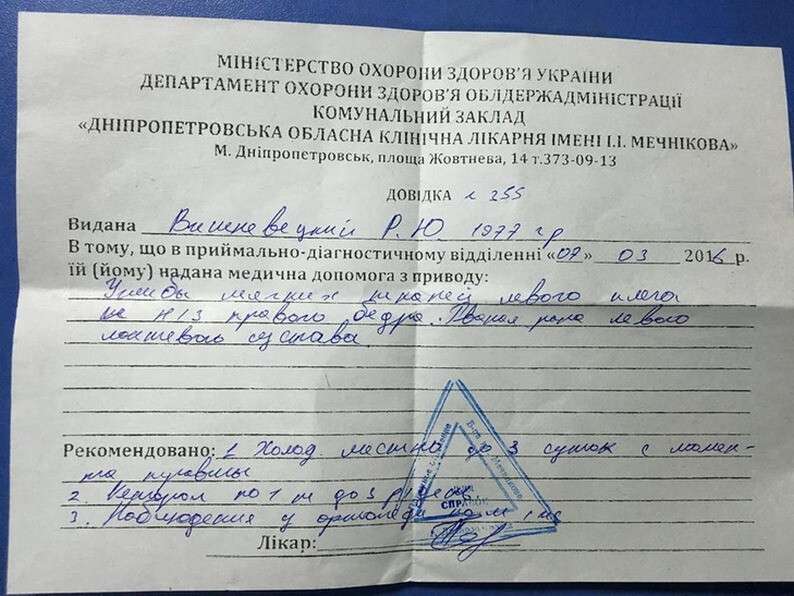 МІНІСТЕРСТВО ОХОРОНИ ЗДОРОВ'Я УКРАЇНИ
ДЕПАРТАМЕНТ ОХОРОНИ ЗДОРОВ'Я ОБЛДЕРЖАДМІНІСТРАЦІЇ
КОМУНАЛЬНИЙ ЗАКЛАД
«ДНІПРОПЕТРОВСЬКА ОБЛАСНА КЛІНІЧНА ЛІКАРНЯ ІМЕНІ І.І. МЕЧНІКОВА»
М. Дніпропетровськ, площа Жовтнева, 14 т.373-09-13
ДОВІДКА 255
Видана Вишневецкий Р. Ю 1977 гр
В тому, що в приймально-діагностичному відділенні «07» 03 2016 р.
їй (йому) надана медична допомога з приводу:
Ушибы мягких тканей левого плеча
н/з правого бедра. Рваная рана левого
локтевого сустава.
Рекомендовано: 1 Холод местно до 3 суток с момен-
та травмы
2. Кеторол по 1 т до 3 р/
3. Наблюдение у ортопеда по м/ж
СПРАВОК
Лікар: